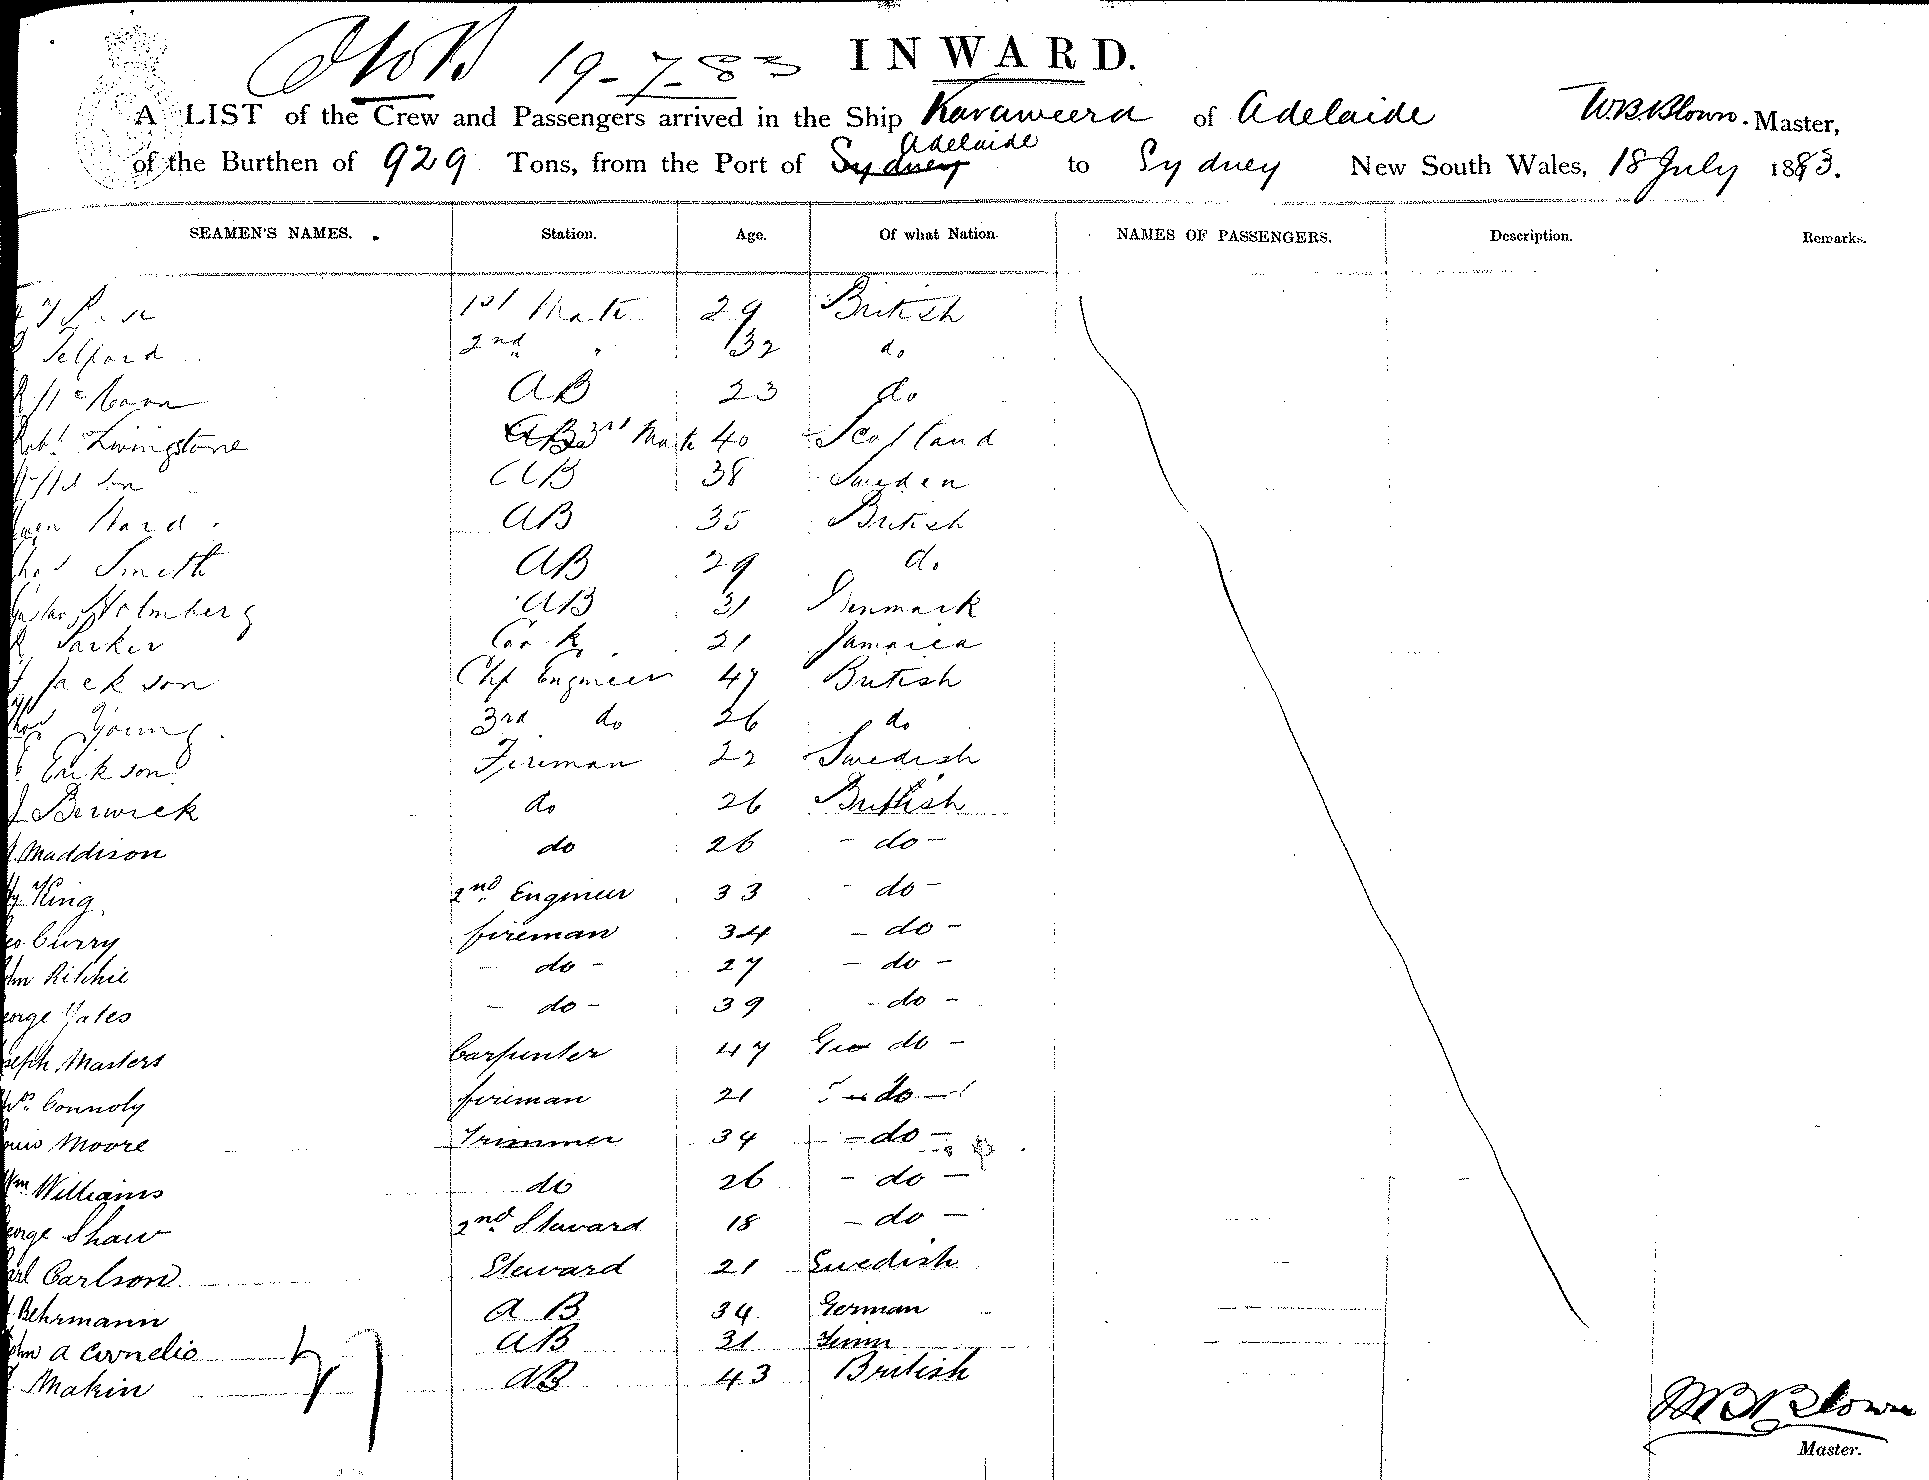 19-7-83 INWARD.
A LIST of the Crew and Passengers arrived in the Ship Karaweera of Adelaide W.B. Blown. Master,
Adelaide
of the Burthen of 929 Tons, from the Port of Sydney to Sydney New South Wales, 18 July 1883.
SEAMEN'S NAMES. Station. Age. Of what Nation. NAMES OF PASSENGERS. Description. Remarks.
1st Mate 29 British
Telford 2nd " 32 do
AB 23 do
Robt Livingstone AB 3rd Mate 40 Scotland
AB 38 Sweden
Ward AB 35 British
Smith AB 29 do
Holmberg AB 31 Denmark
Parker Cook 21 Jamaica
Jackson Chf Engineer 47 British
Young 3rd do 26 do
Erikson Fireman 22 Swedish
Berwick do 26 British
Maddison do 26 - do -
King 2nd Engineer 33 - do -
Curry fireman 34 - do -
Ritchie - do - 27 - do -
George Yates - do - 39 - do -
Joseph Masters Carpenter 47 do -
Connoly fireman 21 do -
Louis Moore Trimmer 34 - do -
Wm Williams do 26 - do -
George Shaw 2nd Steward 18 - do -
Carl Carlson Steward 21 Swedish
Behrmann AB 34 German
John A Cornelio AB 31 Finn
Makin AB 43 British
27
W.B. Blown
Master.